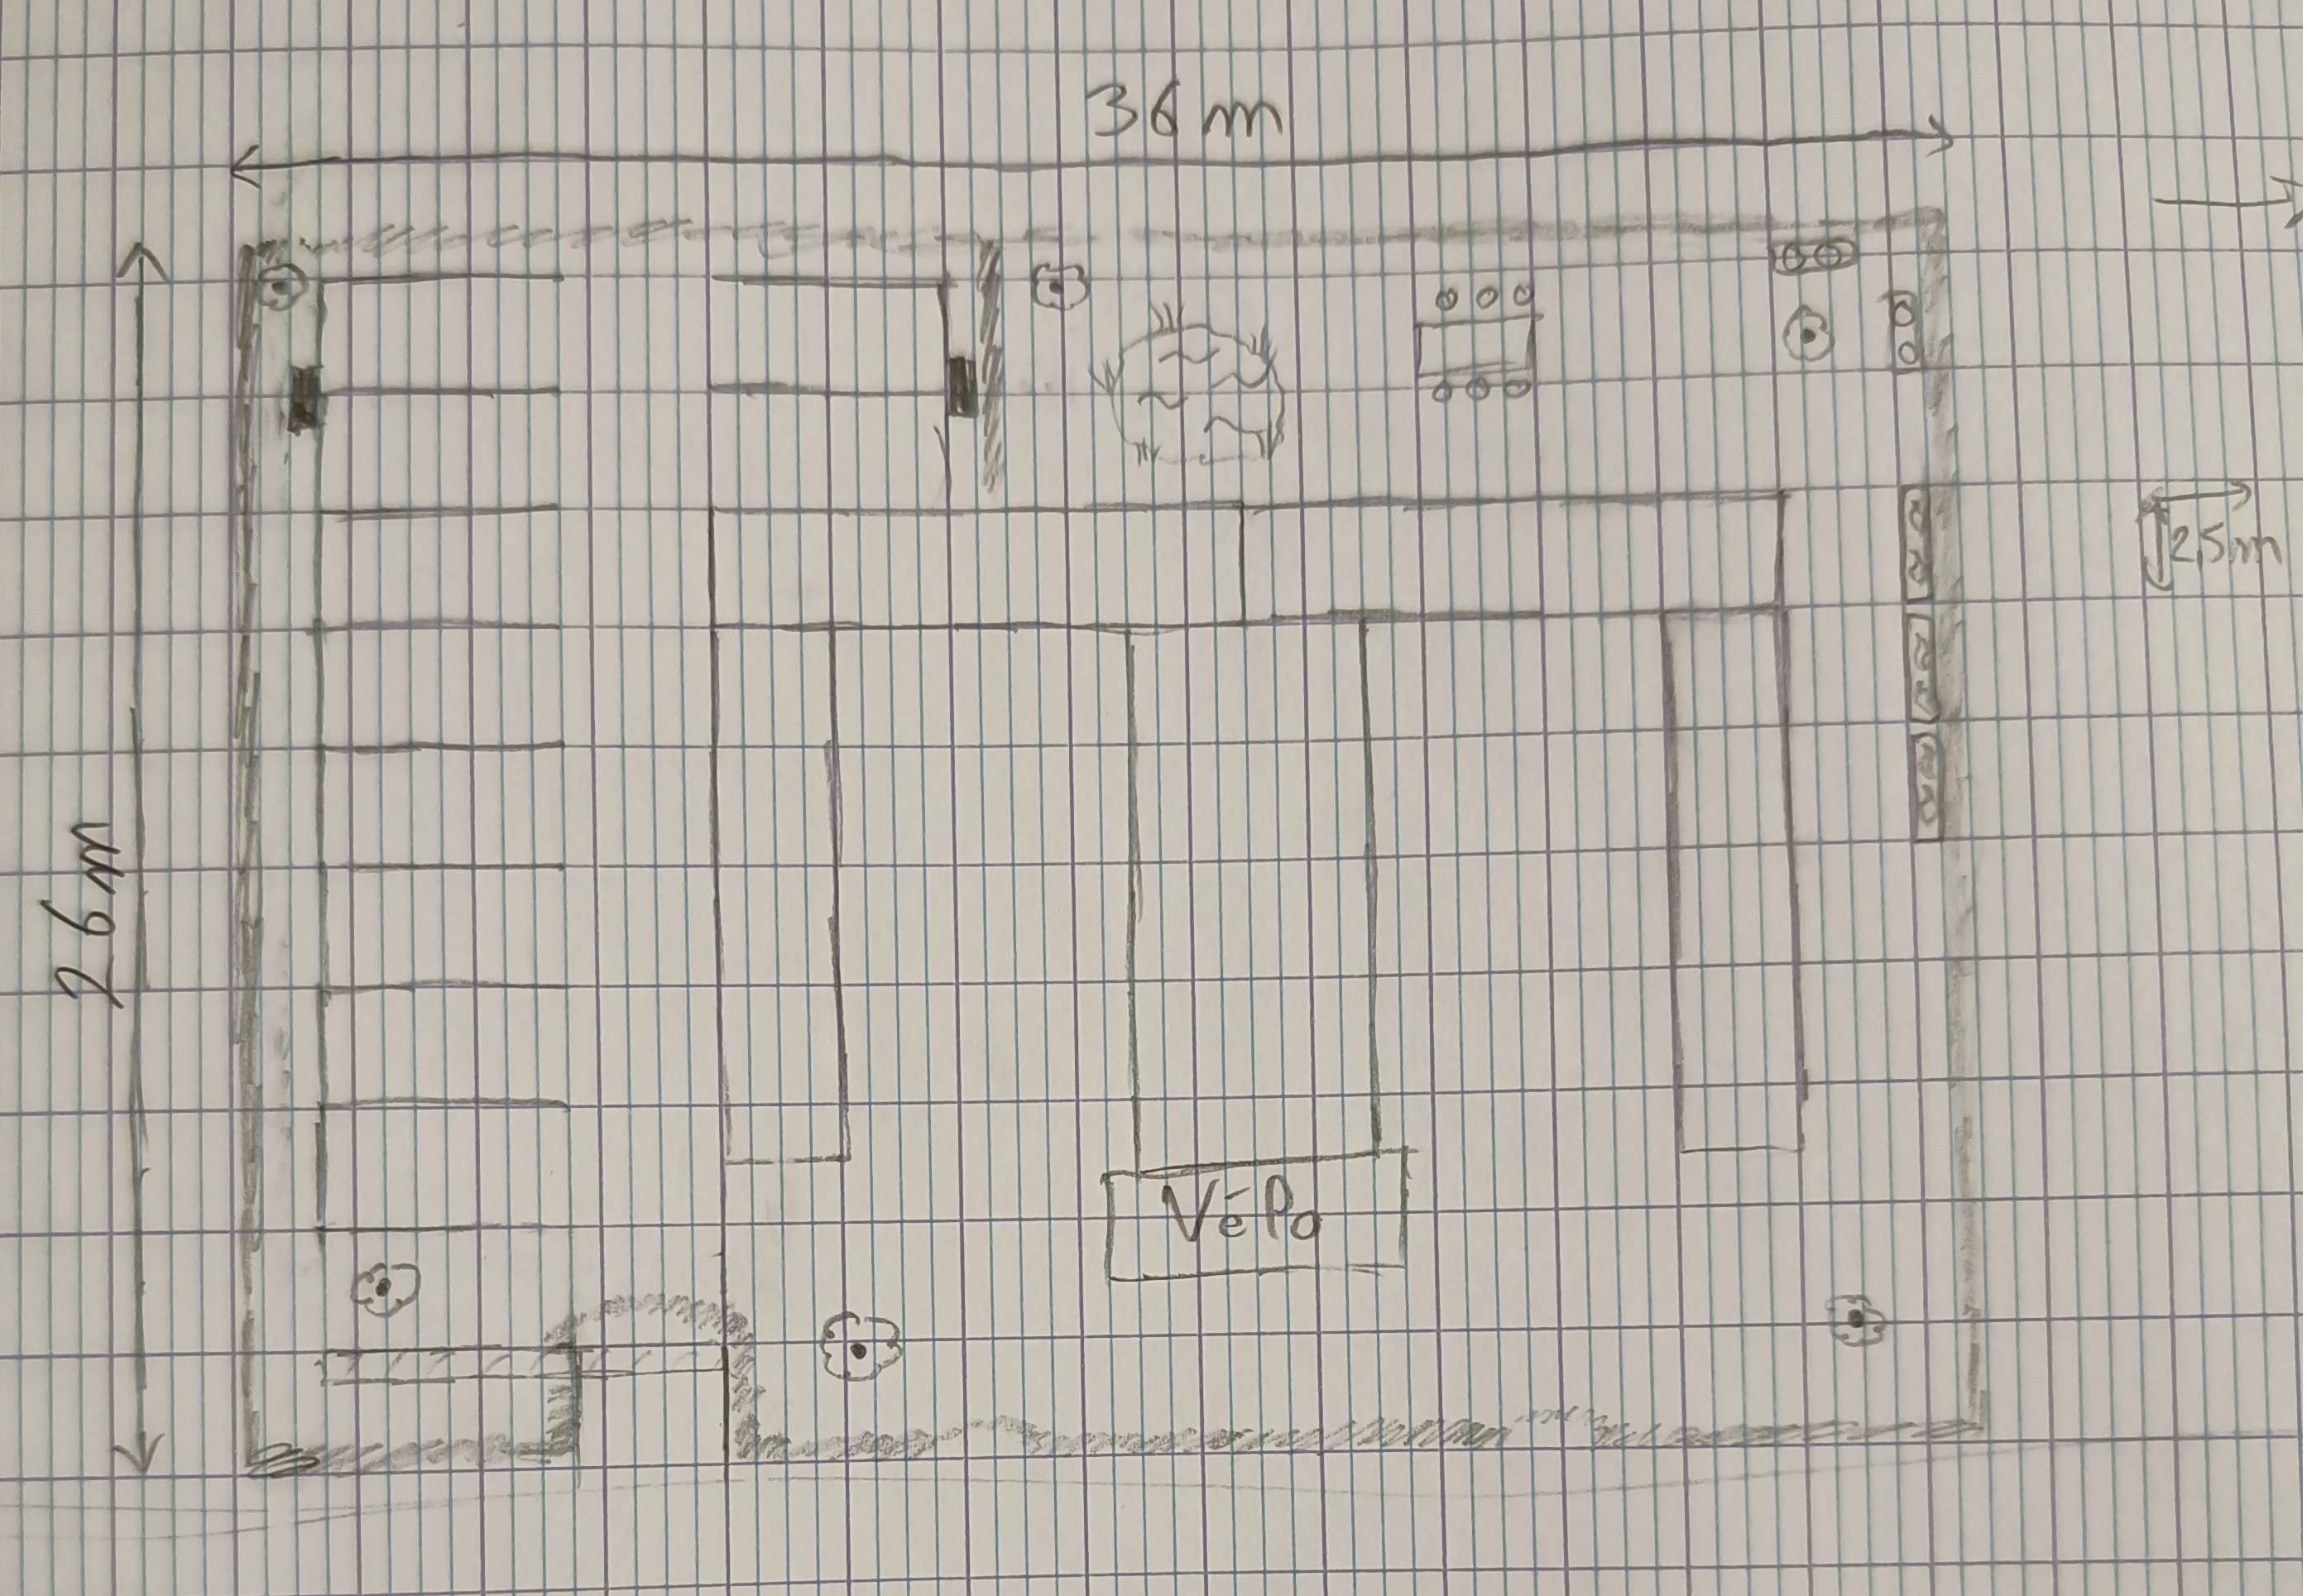 36 m
2,5m
26m
VéPo